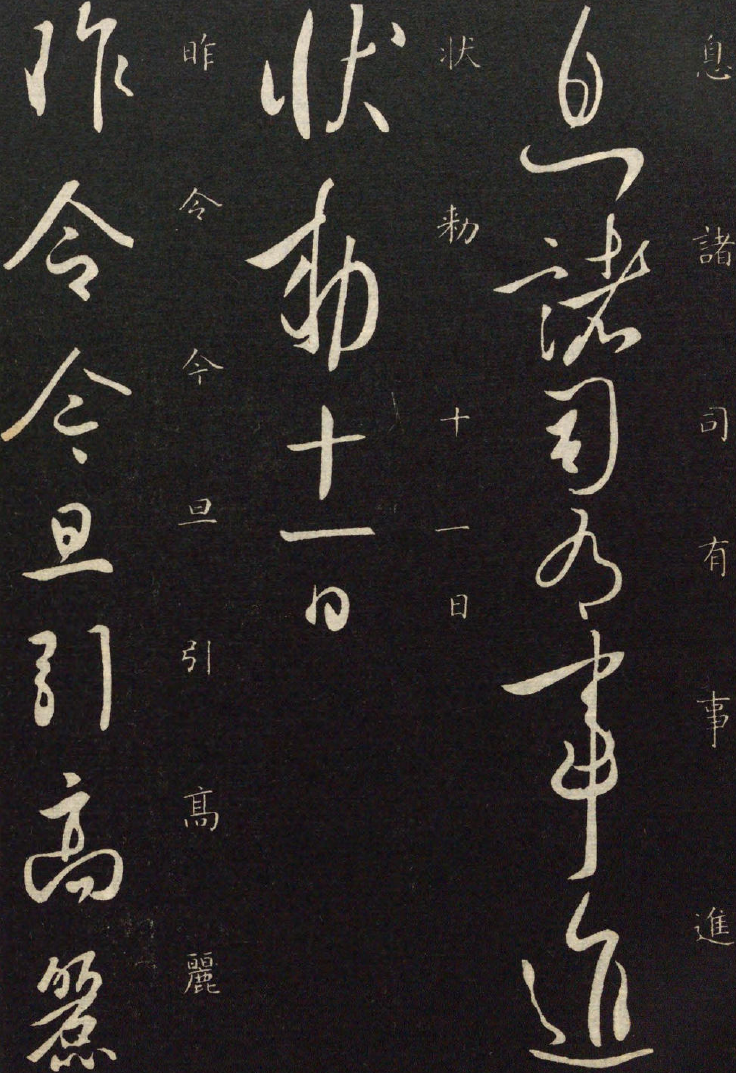 息諸司有事進
息諸司有事進
状勅十一日
状勅十一日
昨令今旦引高麗
昨令今旦引髙麗